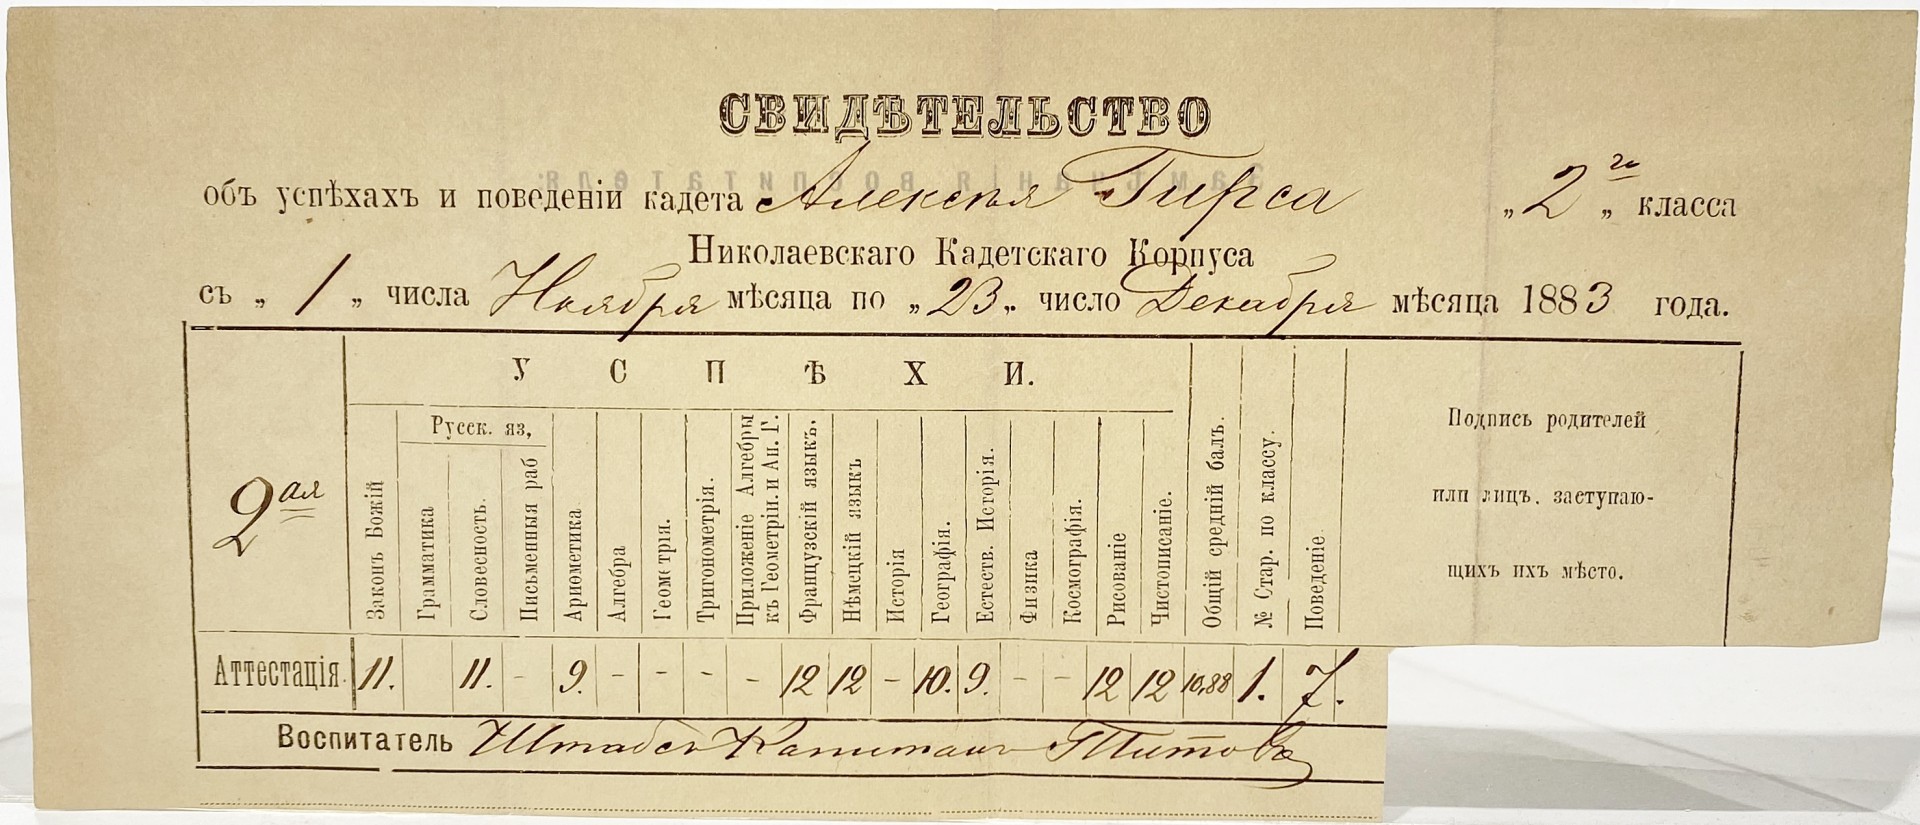 СВИДѢТЕЛЬСТВО
объ успѣхахъ и поведеніи кадета Алексѣя Гирса „ 2го „ класса
Николаевскаго Кадетскаго Корпуса
съ „ 1 „ числа Ноября мѣсяца по „ 23 „ число Декабря мѣсяца 1883 года.
2ая
УСПѢХИ.
Законъ Божій
Русск. яз,
Грамматика
Словесность.
Письменныя раб
Ариѳметика
Алгебра
Геометрія.
Тригонометрія.
Приложеніе Алгебры
къ Геометріи. и Ан. Г.
Французскій языкъ.
Нѣмецкій языкъ
Исторія
Географія.
Естеств. Исторія.
Физика
Космографія.
Рисованіе
Чистописаніе.
Общій средній балъ.
№ Стар. по классу.
Поведеніе
Подпись родителей
или лицъ. заступаю-
щихъ ихъ мѣсто.
Аттестація 11. 11. - 9. - - - - 12 12 - 10. 9. - - 12 12 10,88 1. 7.
Воспитатель Штабсъ Капитанъ Титовъ
Замѣчанія воспитателя: